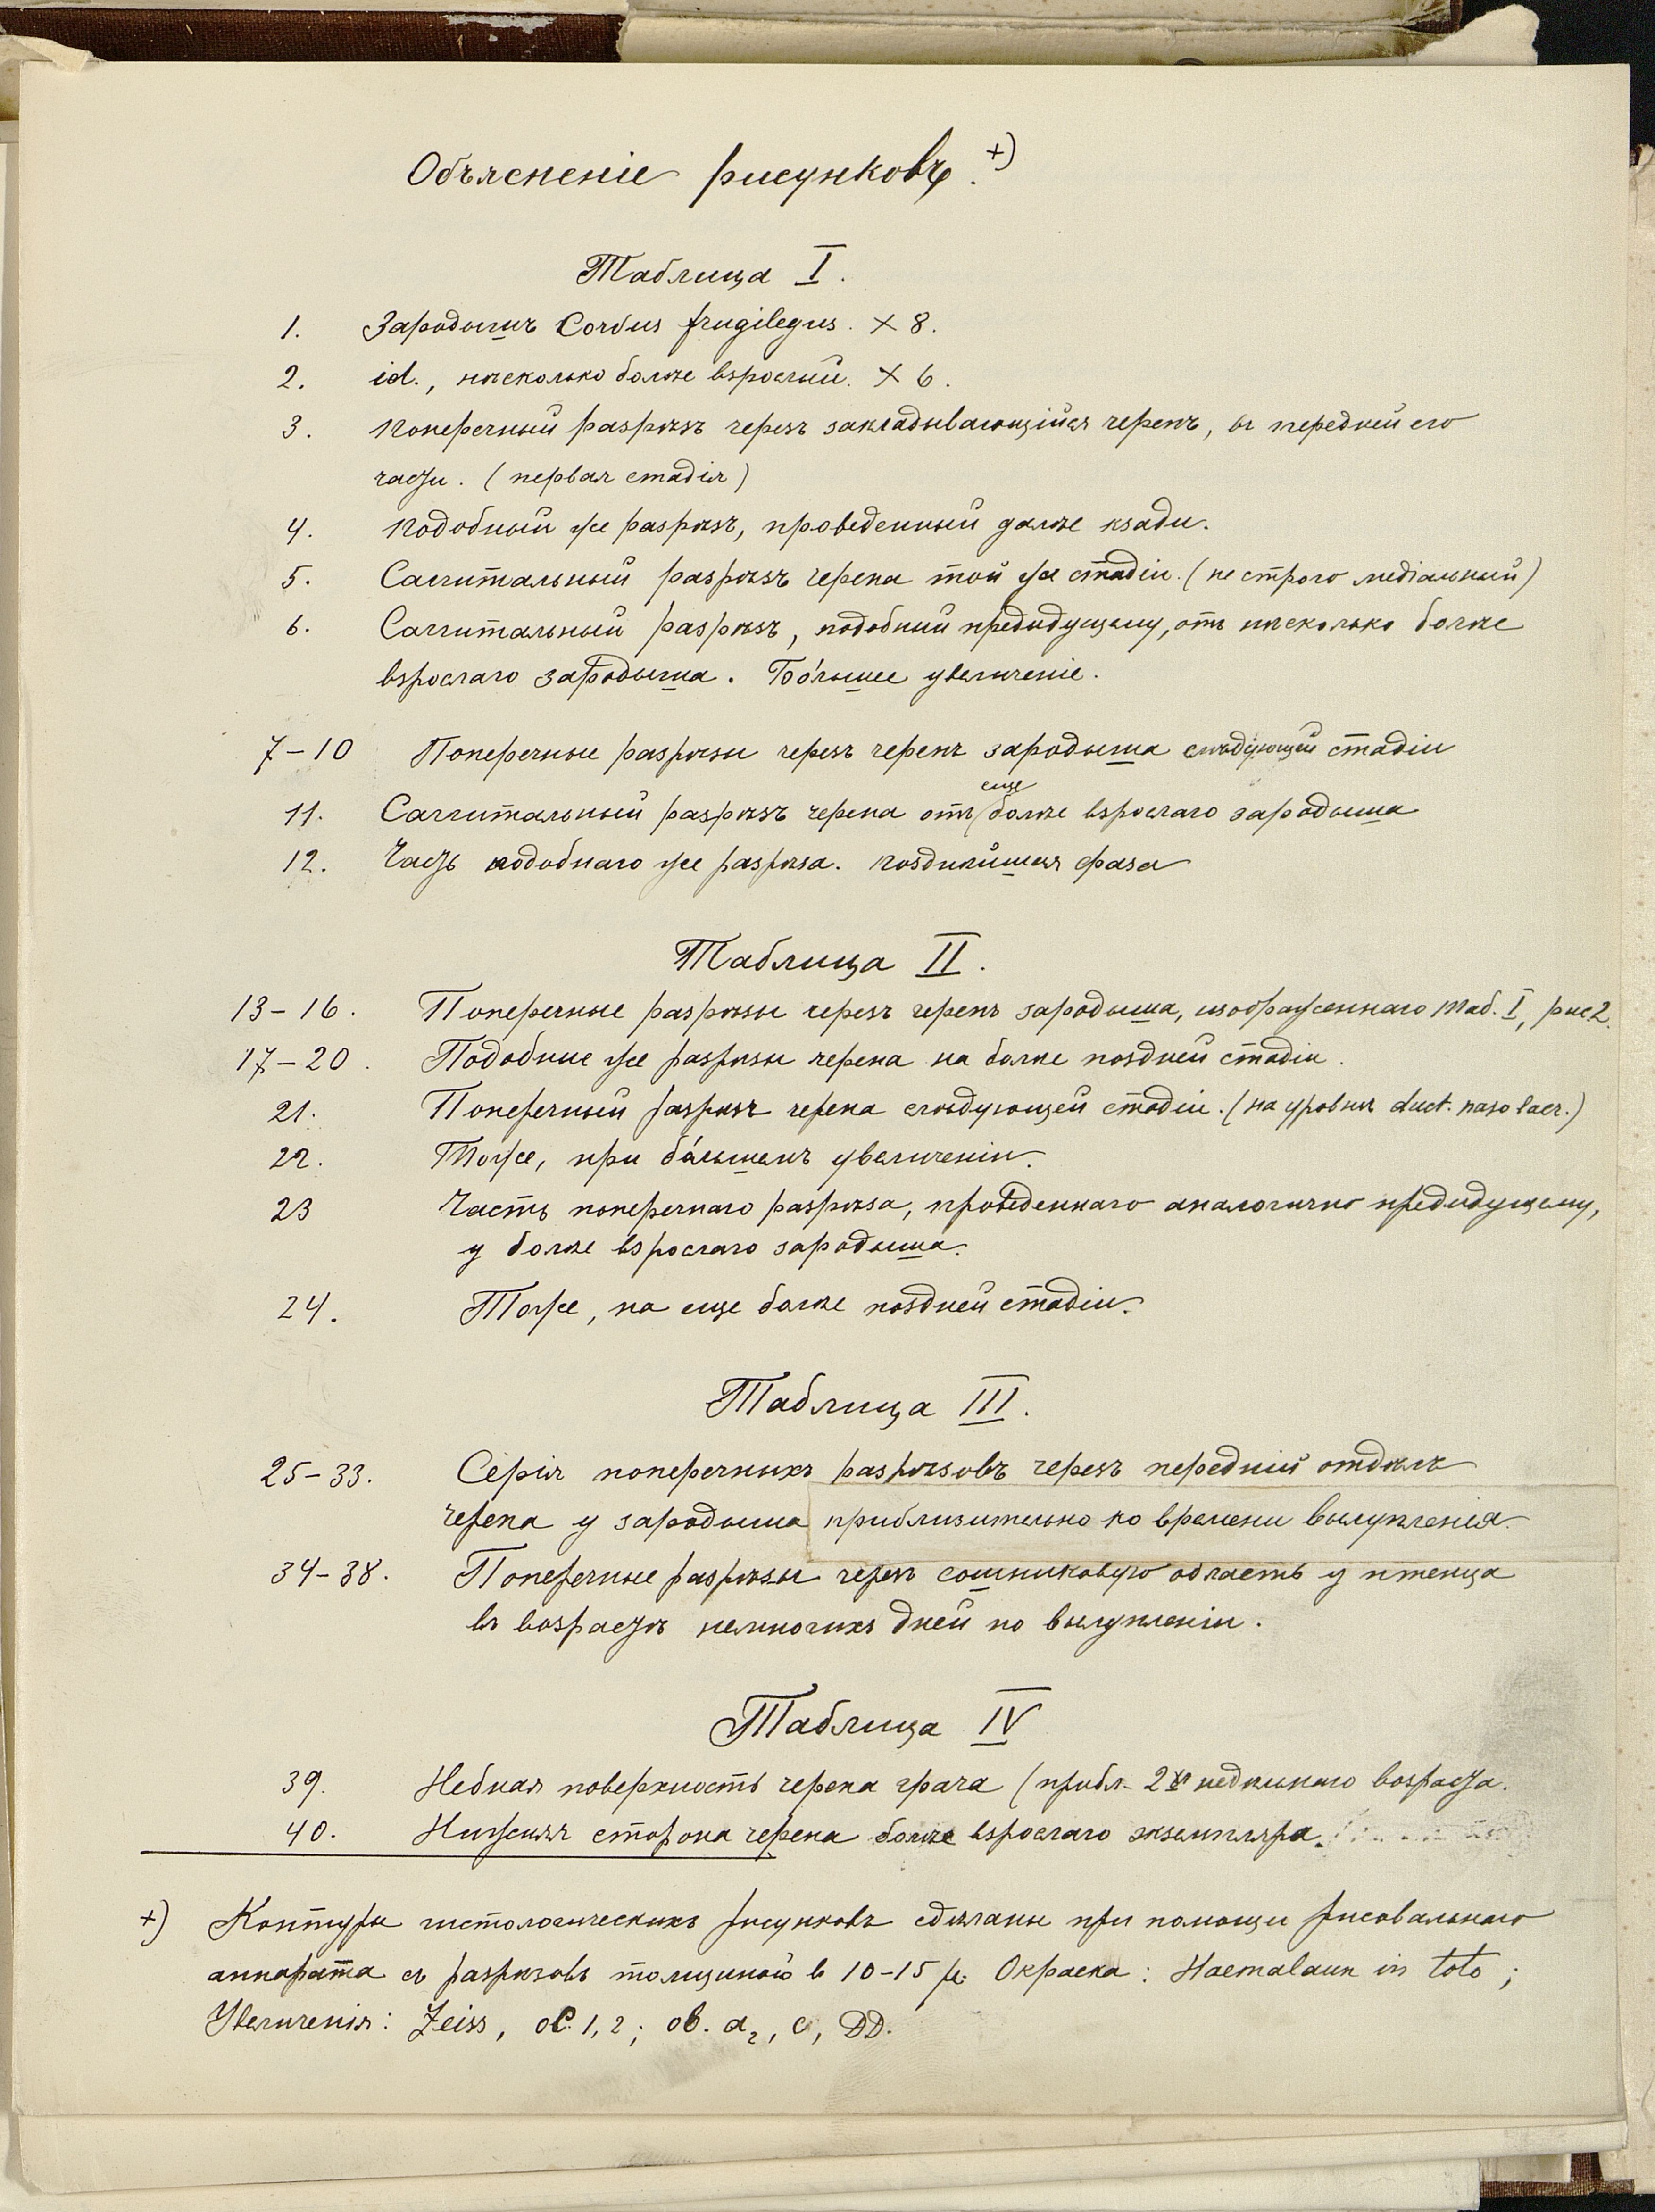 Объясненіе рисунковъ. +)
Таблица I.
1. Зародышъ Corvus frugilegus. × 8.
2. id., нѣсколько болѣе взрослый. × 6.
3. Поперечный разрѣзъ черезъ закладывающійся черепъ, въ передней его
части. (первая стадія)
4. Подобный же разрѣзъ, проведенный далѣе кзади.
5. Сагитальный разрѣзъ черепа той же стадіи. (не строго медіальный)
6. Сагитальный разрѣзъ, подобный предидущему, отъ нѣсколько болѣе
взрослаго зародыша. Бо́льшее увеличеніе.
7-10 Поперечные разрѣзы черезъ черепъ зародыша слѣдующей стадіи
11. Сагитальный разрѣзъ черепа отъ еще болѣе взрослаго зародыша
12. Часть подобнаго же разрѣза. Позднѣйшая фаза
Таблица II.
13-16. Поперечные разрѣзы черезъ черепъ зародыша, изображеннаго таб. I, рис 2.
17-20. Подобные же разрѣзы черепа на болѣе поздней стадіи.
21. Поперечный разрѣзъ черепа слѣдующей стадіи. (на уровнѣ duct. naso lacr.)
22. Тоже, при бо́льшемъ увеличеніи.
23 Часть поперечнаго разрѣза, проведеннаго аналогично предидущему,
у болѣе взрослаго зародыша.
24. Тоже, на еще болѣе поздней стадіи.
Таблица III.
25-33. Серія поперечныхъ разрѣзовъ черезъ передній отдѣлъ
черепа у зародыша приблизительно ко времени вылупленія.
34-38. Поперечные разрѣзы черезъ сошниковую область у птенца
въ возрастѣ немногихъ дней по вылупленіи.
Таблица IV
39. Небная поверхность черепа грача (прибл. 2х недѣльнаго возраста.
40. Нижняя сторона черепа болѣе взрослаго экземпляра.
+) Контуры гистологическихъ рисунковъ сдѣланы при помощи рисовальнаго
аппарата съ разрѣзовъ толщиною в 10-15 μ. Окраска: Haemalaun in toto;
Увеличенія: Zeiss, oc. 1, 2; ob. a2, C, DD.